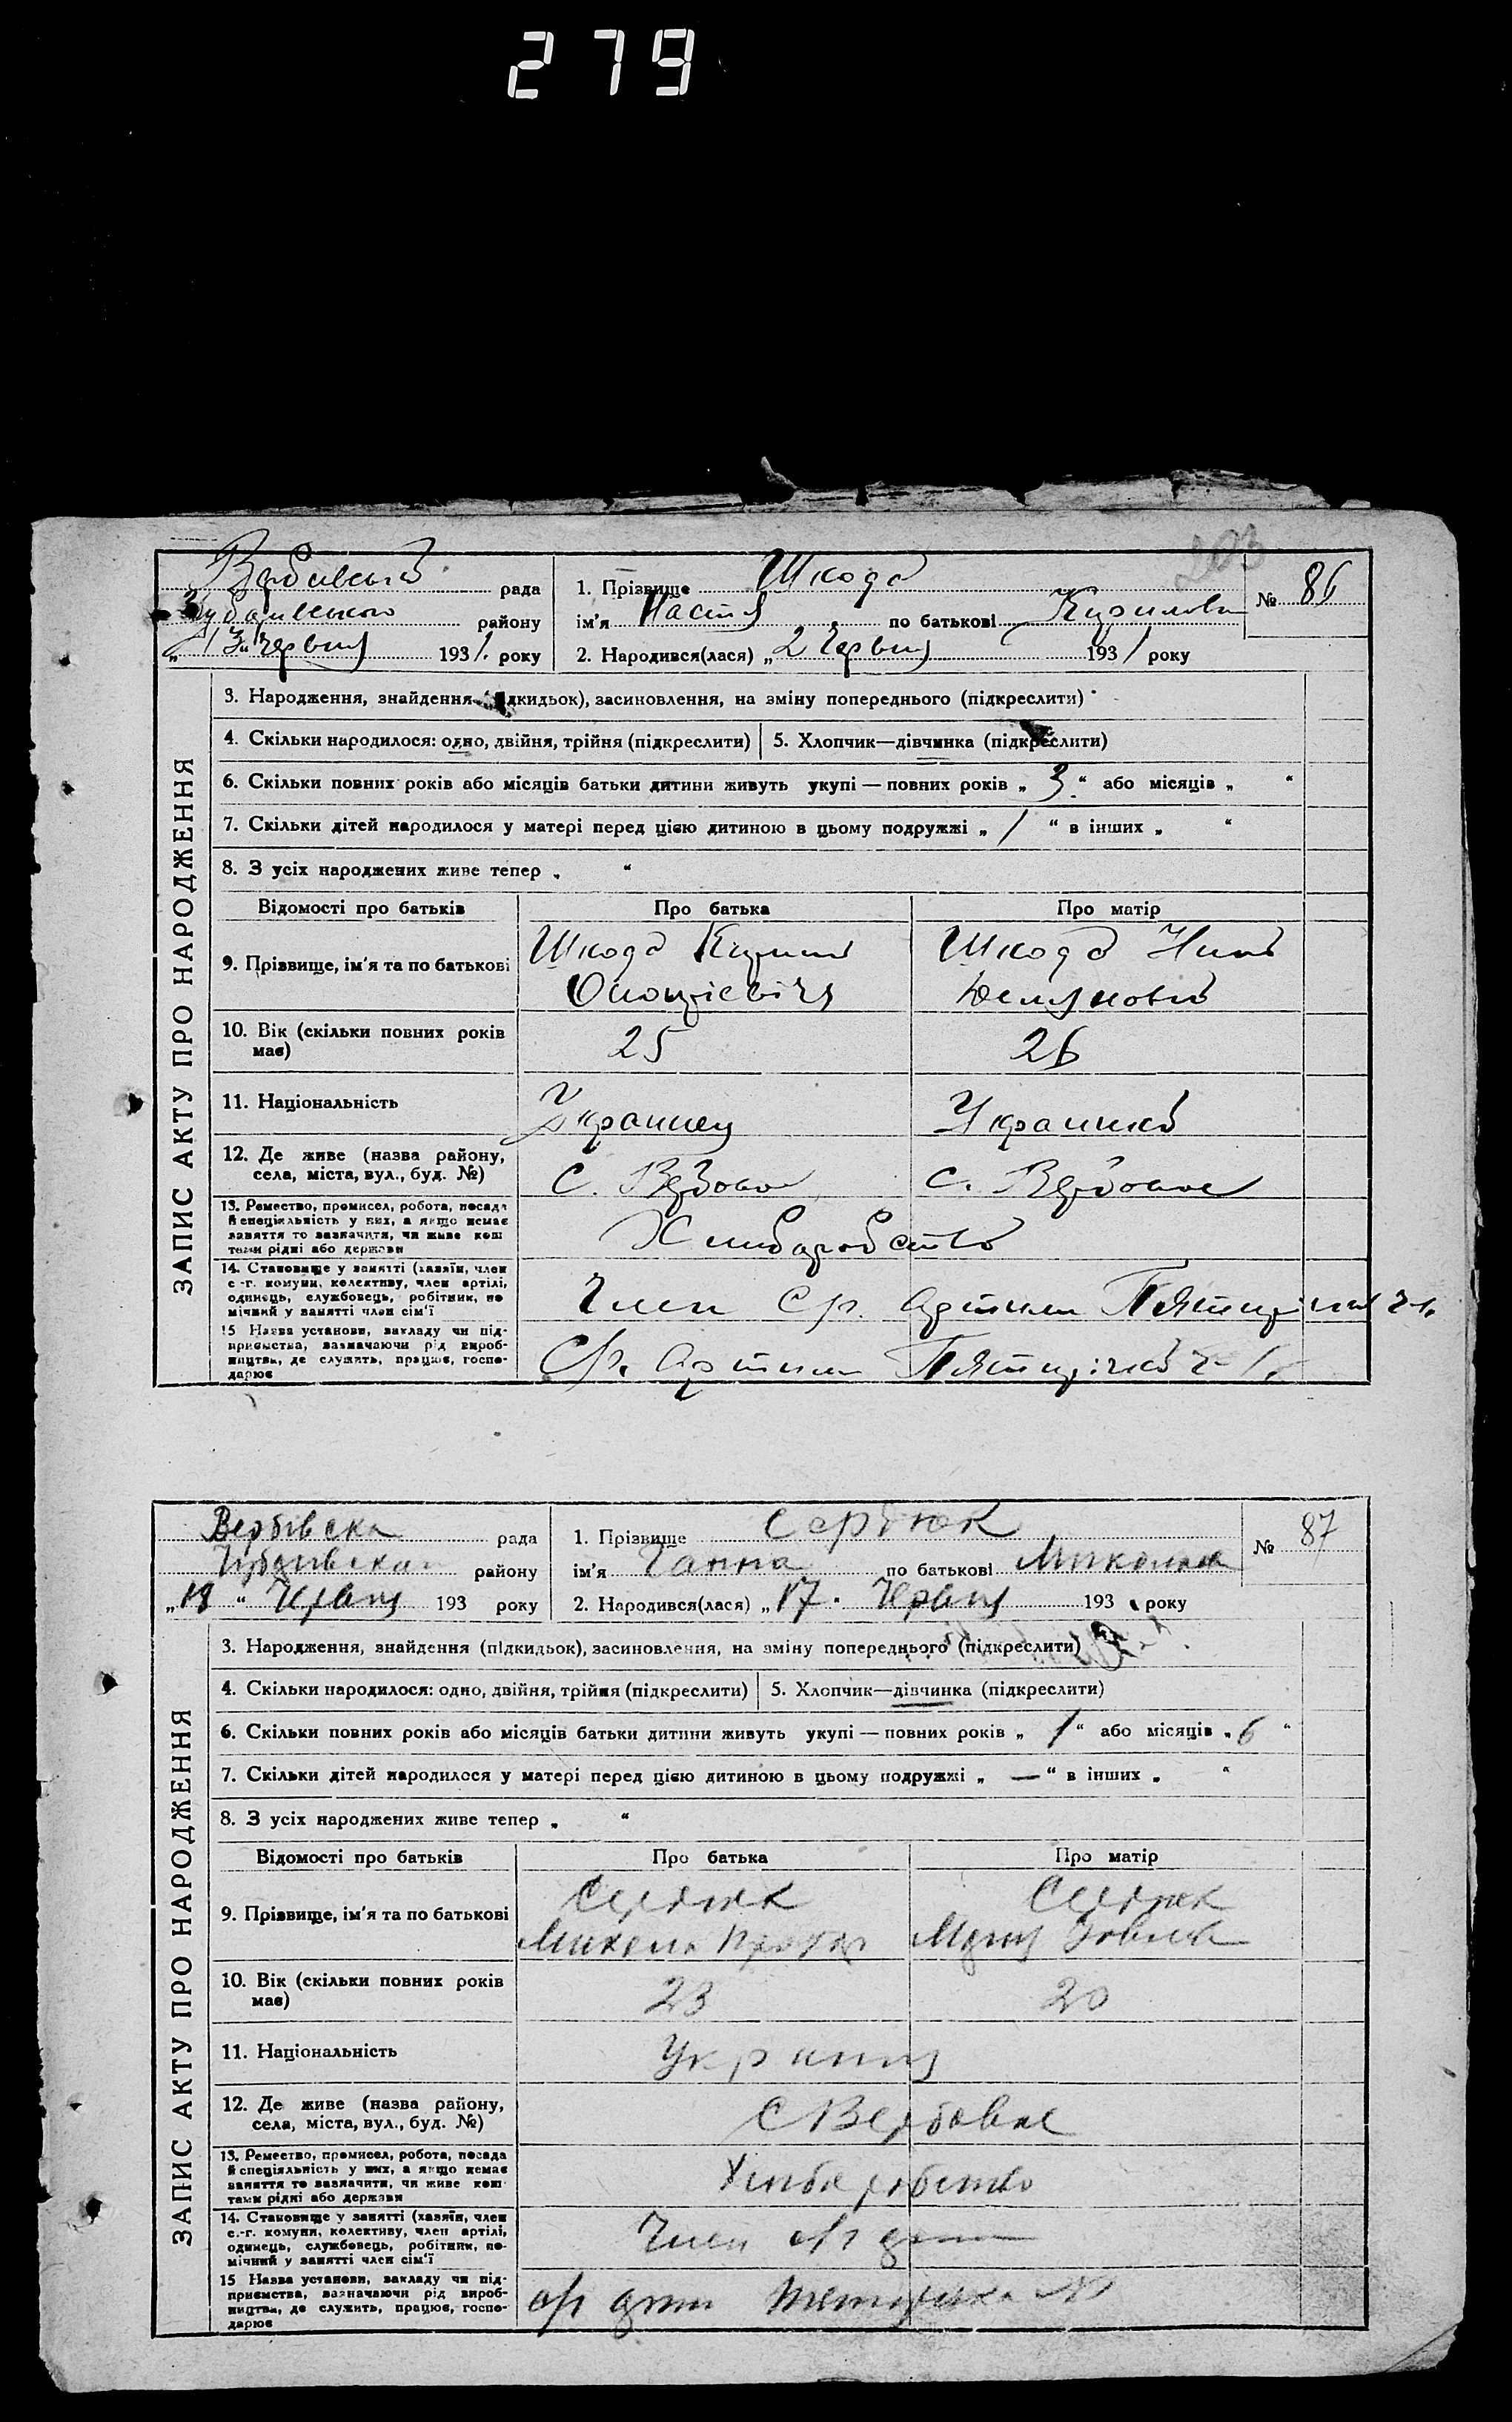 279
203
Вербівська рада
району
"13" Червня 1931. року
1. Прізвище Шкода
ім'я Настя по батькові Кирилова
2. Народився(лася) „2 Червня 1931 року
№ 86
ЗАПИС АКТУ ПРО НАРОДЖЕННЯ
3. Народження, знайдення (підкидьок), засиновлення, на зміну попереднього (підкреслити)
4. Скільки народилося: одно, двійня, трійня (підкреслити) 5. Хлопчик—дівчинка (підкреслити)
6. Скільки повних років або місяців батьки дитини живуть укупі — повних років „ 3 “ або місяців „ “
7. Скільки дітей народилося у матері перед цією дитиною в цьому подружжі „ 1 “ в інших „ “
8. З усіх народжених живе тепер „ “
Відомості про батьків Про батька Про матір
9. Прізвище, ім'я та по батькові
Шкода Кирило
Шкода
10. Вік (скільки повних років має) 25 26
11. Національність Украинец Украинка
12. Де живе (назва району, села, міста, вул., буд. №) С. Вербове С. Вербове
13. Ремество, промисел, робота, посада
й спеціяльність у них, а якщо немає
заняття то зазначити, чи живе кош
тами рідні або держави
Хлиборобство
14. Становище у занятті (хазяїн, член
с.-г. комуни, колективу, член артілі,
одинець, службовець, робітник, по
мічний у занятті член сім'ї
Член Ср. Артили Пятирічка
15 Назва установи, закладу чи під-
приємства, зазначаючи рід вироб-
ництва, де служить, працює, госпо-
дарює
Ср. Артили Пятирічка
Вербівска рада
району
„18 “ Червня 193 року
1. Прізвище Сердюк
ім'я Ганна по батькові Миколаев
2. Народився(лася) „17. Червня 193 року
№ 87
ЗАПИС АКТУ ПРО НАРОДЖЕННЯ
3. Народження, знайдення (підкидьок), засиновлення, на зміну попереднього (підкреслити)
4. Скільки народилося: одно, двійня, трійня (підкреслити) 5. Хлопчик—дівчинка (підкреслити)
6. Скільки повних років або місяців батьки дитини живуть укупі — повних років „ 1 “ або місяців „ 6 “
7. Скільки дітей народилося у матері перед цією дитиною в цьому подружжі „ — “ в інших „ “
8. З усіх народжених живе тепер „ “
Відомості про батьків Про батька Про матір
9. Прізвище, ім'я та по батькові
Сердюк Сердюк
Микола
10. Вік (скільки повних років має) 23 20
11. Національність
12. Де живе (назва району, села, міста, вул., буд. №) С Вербовке
13. Ремество, промисел, робота, посада
й спеціяльність у них, а якщо немає
заняття то зазначити, чи живе кош
тами рідні або держави
Хлиборобство
14. Становище у занятті (хазяїн, член
с.-г. комуни, колективу, член артілі,
одинець, службовець, робітник, по-
мічний у занятті член сім'ї
Член
15 Назва установи, закладу чи під-
приємства, зазначаючи рід вироб-
ництва, де служить, працює, госпо-
дарює